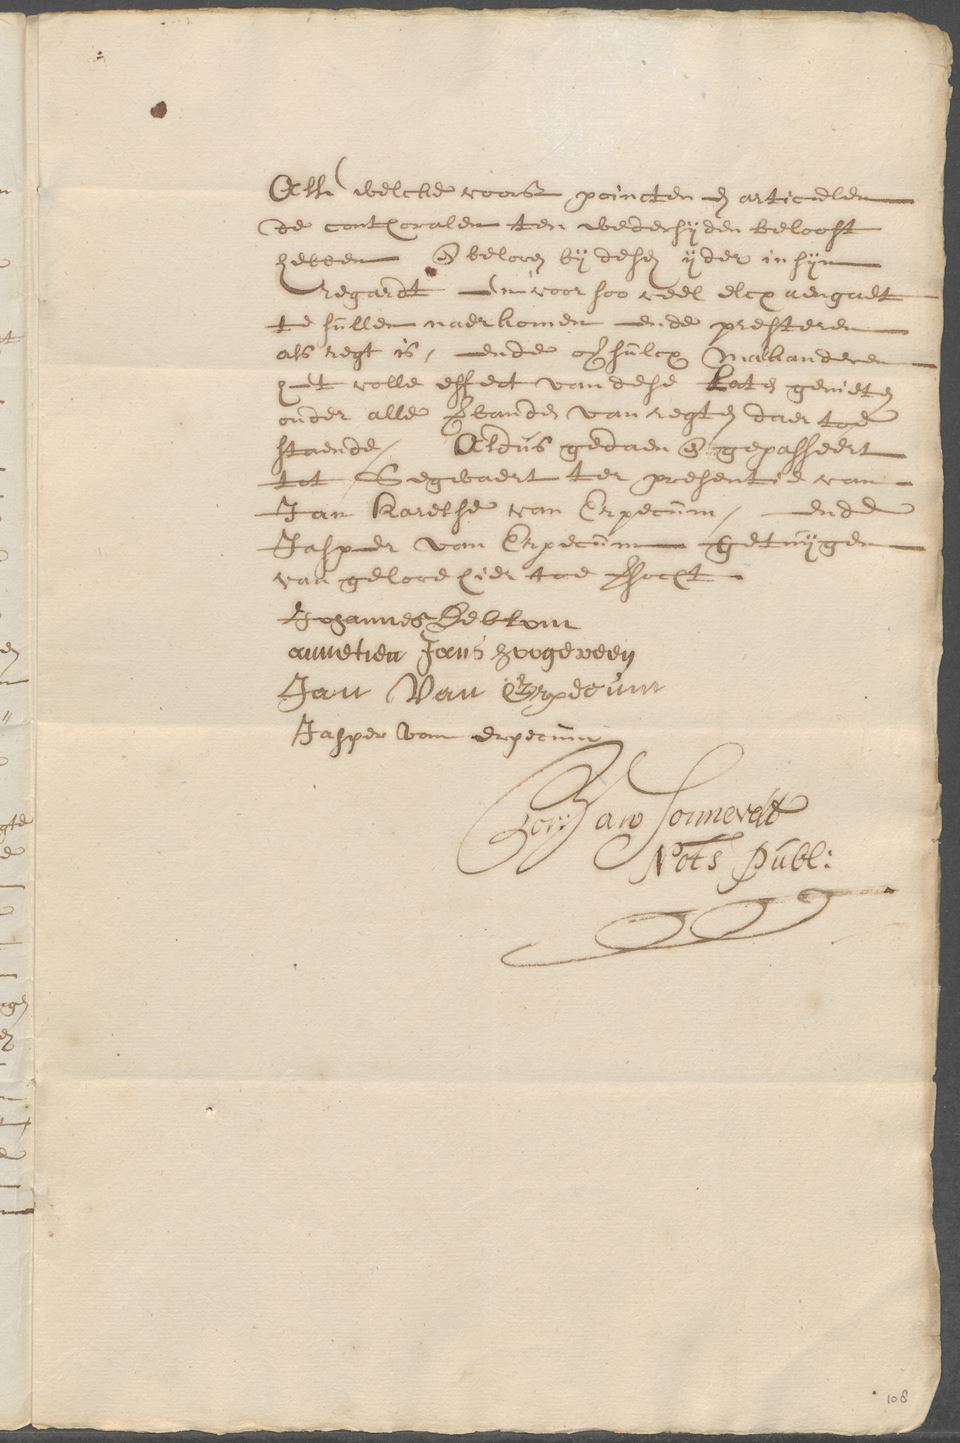 Alle welcke voors. poincten en articulen
de contoralen ten wedersijden belooft
hebben en beloven bij desen ijder in sijn
regardt en voor soo veel elcx aengaet
te sullen naerkomen ende presteren
als regt is, ende op sulcx malkanderen
het volle effect van dese laten genieten
onder alle verbanden van regten daer toe
staende, Aldus gedaen en gepasseert
tot Segwaert ter presentie van
Jan Karelse van Erpecum, ende
Jasper van Erpecum getuijgen
van gelove hier toe versocht
Johannes
annetien Jans hoogeveen
Jan Van Erpecum
Jasper van erpecum
Sonnevelt
Nots Publ:
108